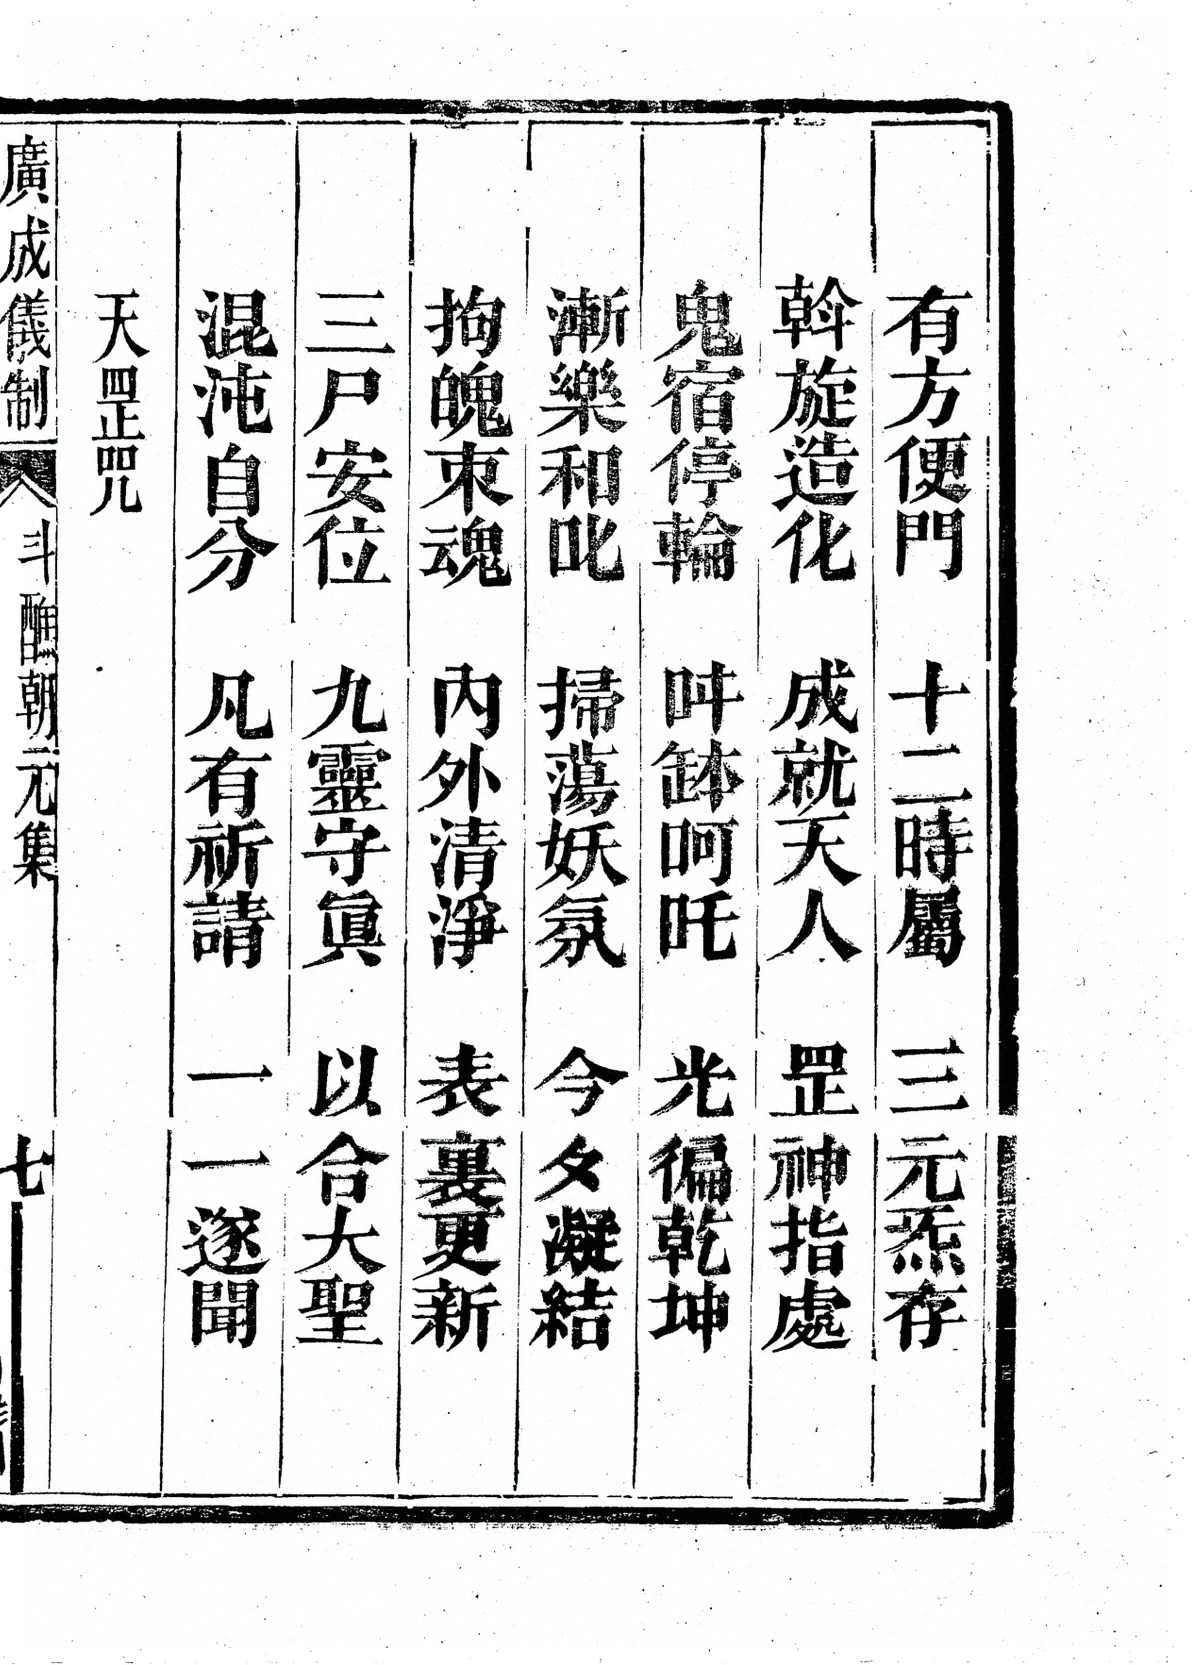 有方便門 十二時屬 三元炁存
斡旋造化 成就天人 罡神指處
鬼宿停輪 吽𦈢呵吒 光徧乾坤
漸樂和叱 掃蕩妖氛 今夕凝結
拘魄束魂 內外清淨 表裏更新
三尸安位 九靈守眞 以合大聖
混沌自分 凡有祈請 一一遂聞
天罡咒
廣成儀制 斗醮朝元集 七